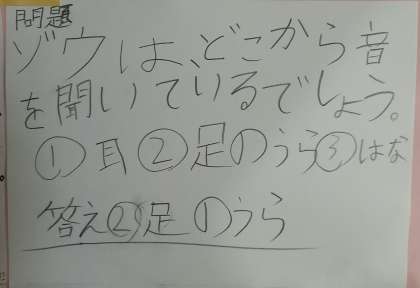 問題
ゾウは、どこから音
を聞いているでしょう。
①耳②足のうら③はな
答え②足のうら